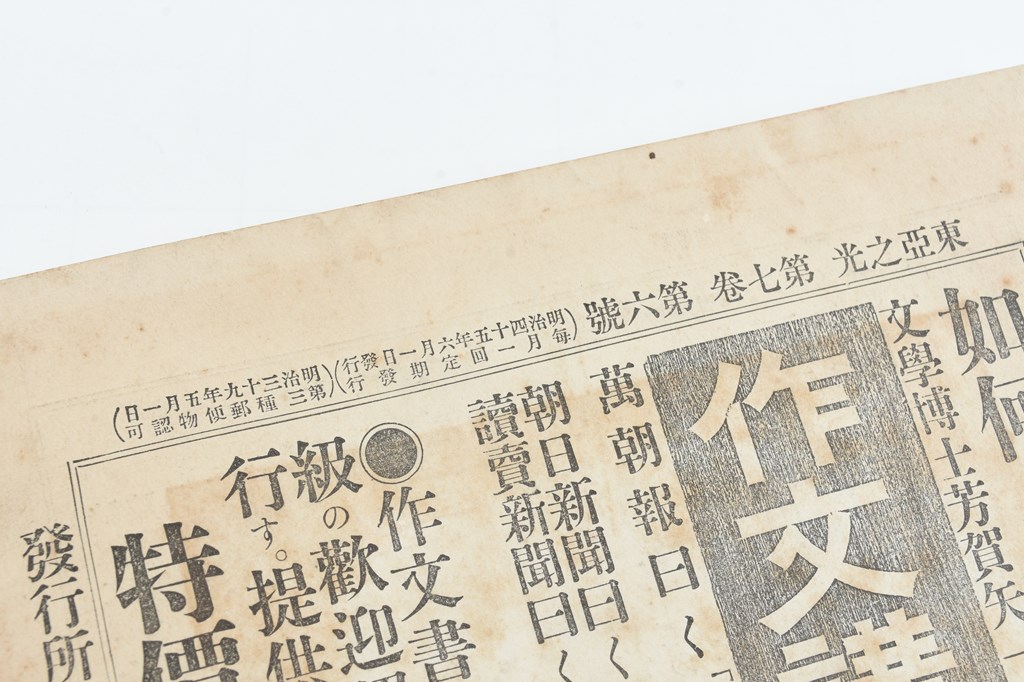 東亞之光 第七卷 第六號
(明治四十五年六月一日發行
毎月一回定期發行)
(明治三十九年五月一日
第三種郵便物認可)
如何
文學博士芳賀矢
作文講
萬朝報曰く
朝日新聞曰く
讀賣新聞曰く
●作文書
級の歡迎
行す。提供
特價
發行所